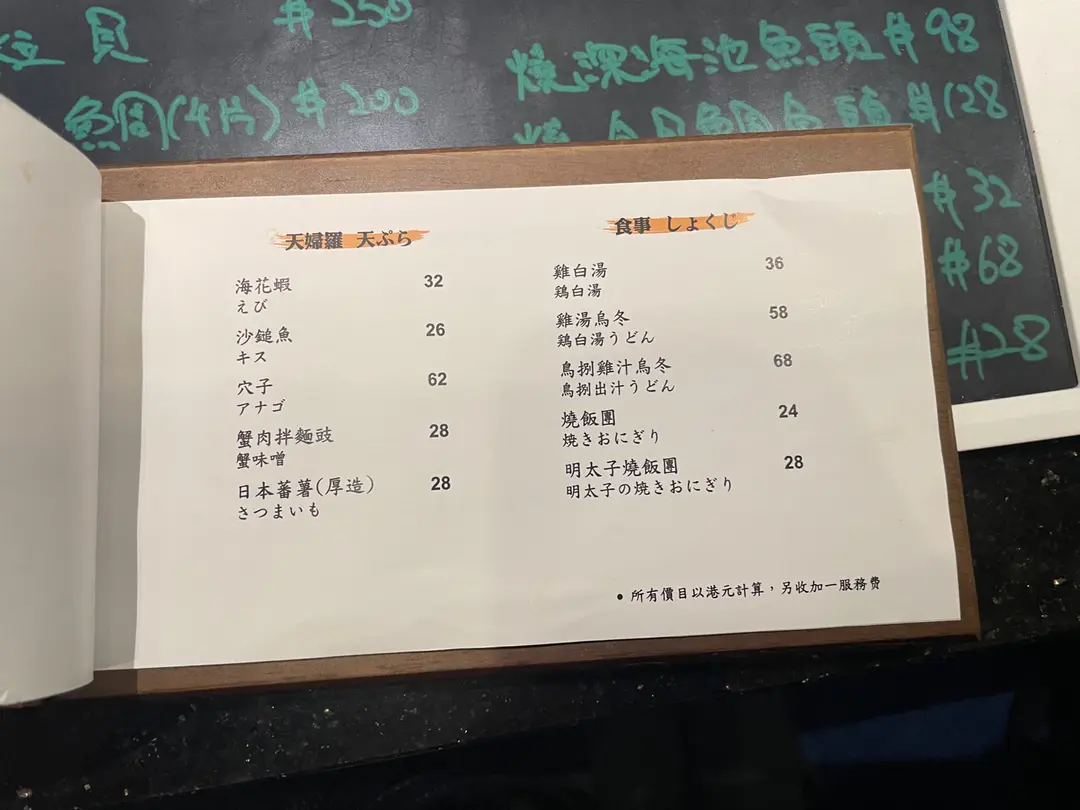 貝 #250
魚閖(4片) #200
燒深海池魚頭 #98
魚頭 #128
#32
#68
#28
天婦羅 天ぷら
海花蝦 32
えび
沙鎚魚 26
キス
穴子 62
アナゴ
蟹肉拌麵豉 28
蟹味噌
日本蕃薯(厚造) 28
さつまいも
食事 しょくじ
雞白湯 36
鶏白湯
雞湯烏冬 58
鶏白湯うどん
鳥捌雞汁烏冬 68
鳥捌出汁うどん
燒飯團 24
焼きおにぎり
明太子燒飯團 28
明太子の焼きおにぎり
• 所有價目以港元計算，另收加一服務費